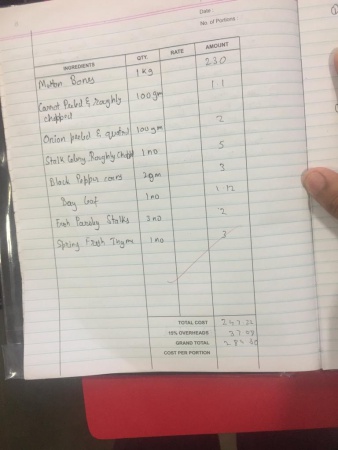 Date :
No. of Portions :
INGREDIENTS QTY. RATE AMOUNT
Mutton Bones 1 kg 230
Carrot Peeled & roughly 100 gm 11
chopped
Onion peeled & quarted 100 gm 2
Stalk Celery Roughly 1 no 5
Black Pepper corns 2 gm 3
Bay Leaf 1 no
Fresh Parsley Stalks 3 no 2
Spring Fresh Thyme 1 no 3
TOTAL COST
OVERHEADS
GRAND TOTAL
COST PER PORTION